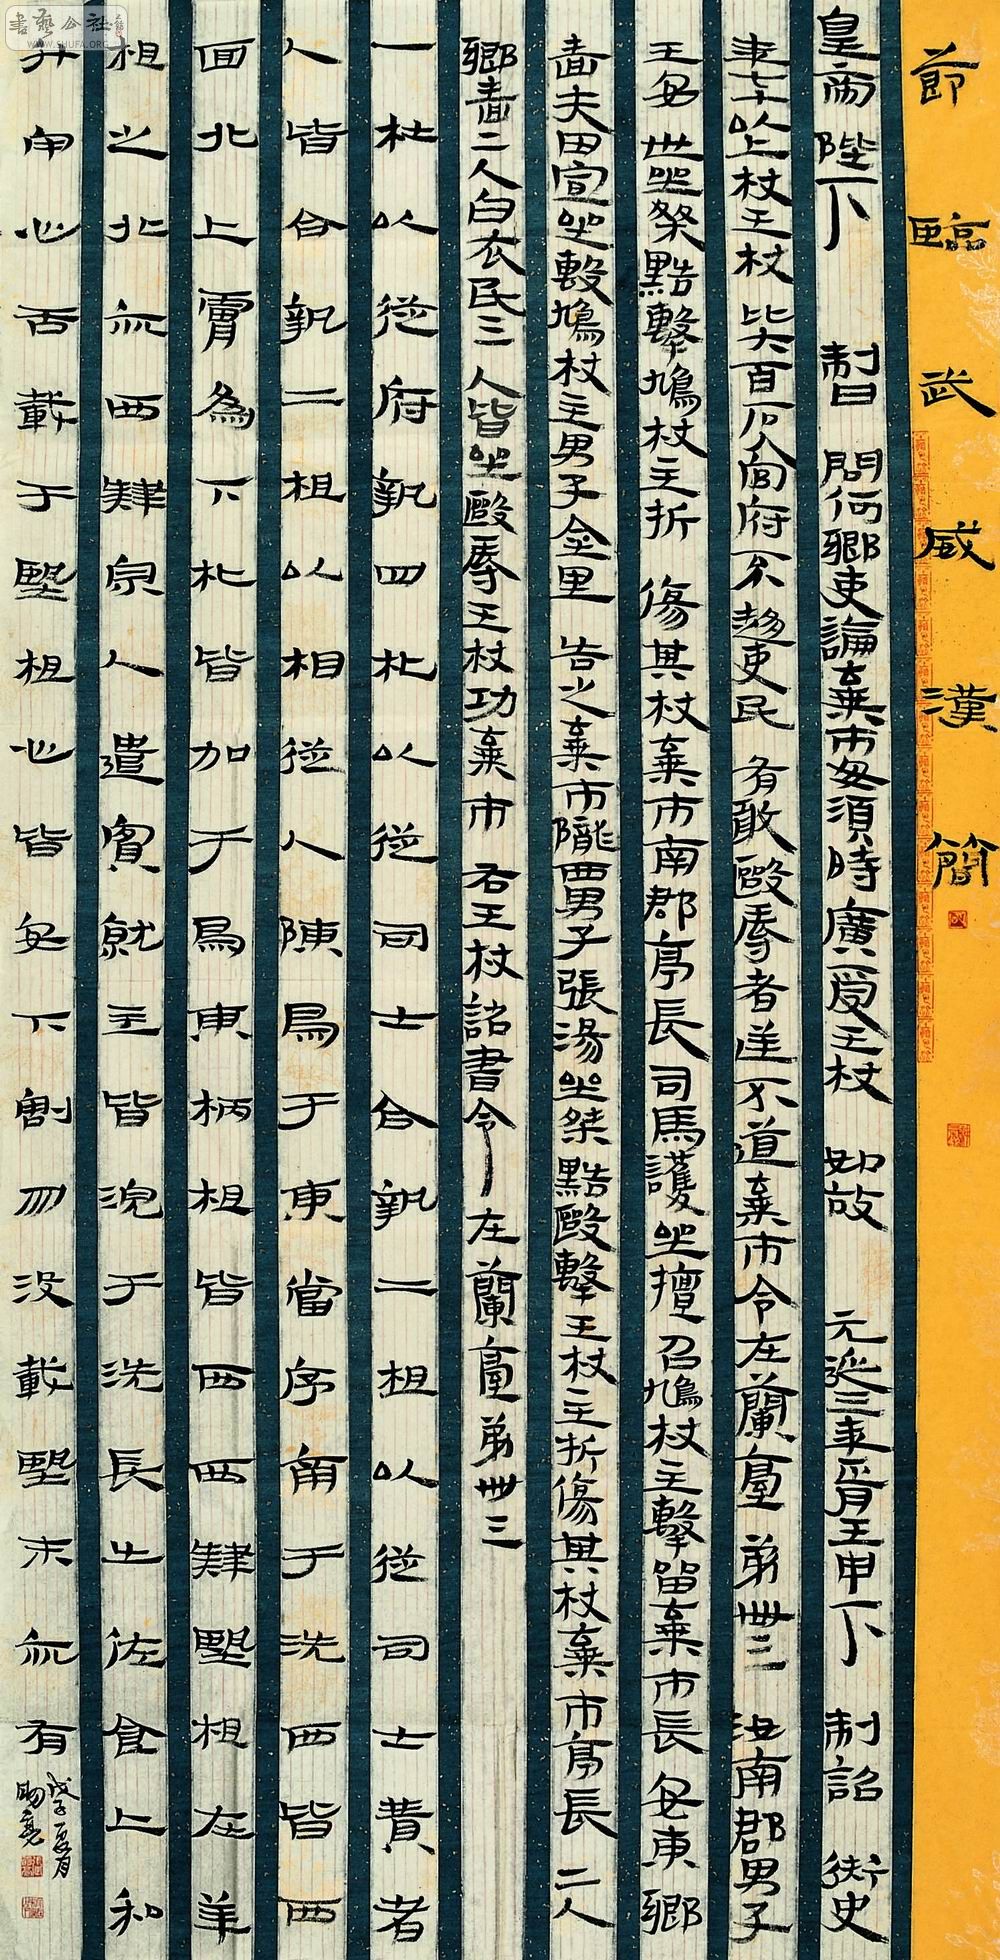 節臨武威漢簡
皇帝陛下 制曰 問何鄉吏論棄市毋須時廣受王杖 如故 元延三年正月壬申下 制詔御史
年七十以上杖王杖比六百石入官府不趨吏民 有敢毆辱者逆不道棄市令在蘭臺第卌三 汝南郡男子
王安世坐桀黠擊鳩杖主折傷其杖棄市南郡亭長司馬護坐擅召鳩杖主擊留棄市長安東鄉
嗇夫田宣坐擊鳩杖主男子金里告之棄市隴西男子張湯坐桀黠毆擊王杖主折傷其杖棄市亭長二人
鄉嗇二人白衣民三人皆坐毆辱王杖功棄市 右王杖詔書令 在蘭臺第卌三
一朼以從府執四朼以從司士合執二柤以從司士費者
人皆合執二柤以相從人陳鼎于東當序南于洗西皆西
面北上霄為下朼皆加于鼎東柄柤皆西西肆俎在羊
柤之北亦西肆宗人遣賓就主皆浣于洗長朼佐食上和
升牢心舌載于柤心皆安下割勿没載柤末亦有
戊子夏月
書藝公社
WWW.SHUFA.ORG